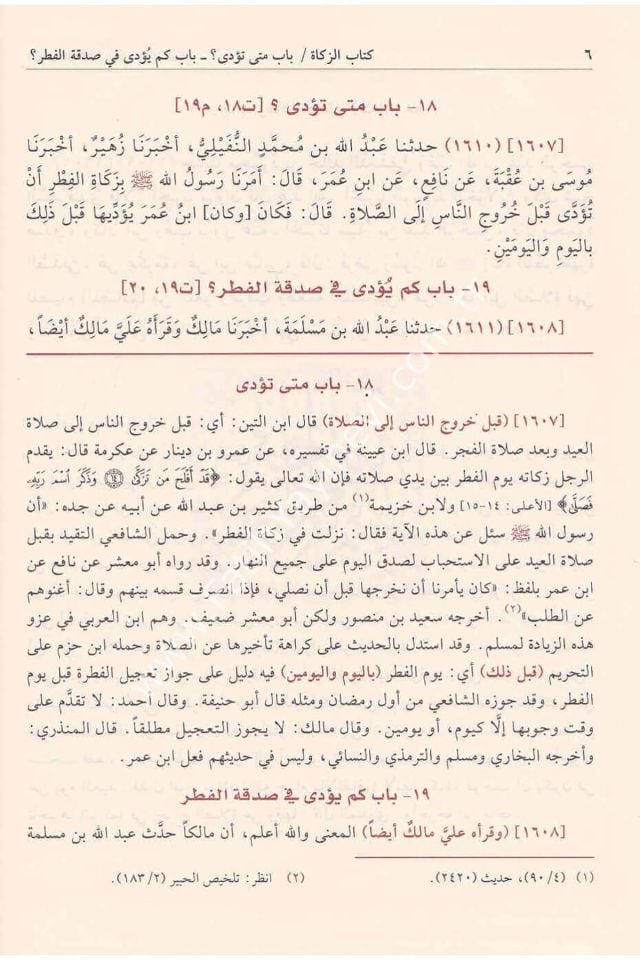 ٦
كتاب الزكاة / باب متى تؤدى؟ ـ باب كم يُؤدى في صدقة الفطر؟
١٨- باب متى تؤدى ؟ [ت١٨، م١٩]
[١٦٠٧] (١٦١٠) حدثنا عَبْدُ الله بن مُحمَّدِ النُّفَيْلِيُّ، أخْبَرَنَا زُهَيْرٌ، أخْبَرَنَا
مُوسَى بن عُقْبَةَ، عَن نَافِعٍ، عَن ابنِ عُمَرَ، قَالَ: أمَرَنَا رَسُولُ الله ﷺ بِزَكَاةِ الفِطْرِ أنْ
تُؤَدَّى قَبْلَ خُرُوجِ النَّاسِ إلَى الصَّلَاةِ. قَالَ: فَكَانَ [وكان] ابنُ عُمَرَ يُؤَدِّيهَا قَبْلَ ذَلِكَ
بالْيَومِ وَاليَومَيْنِ.
١٩- باب كم يُؤدى في صدقة الفطر؟ [ت١٩، ٢٠]
[١٦٠٨] (١٦١١) حدثنا عَبْدُ الله بن مَسْلَمَةَ، أخْبَرَنَا مَالِكٌ وَقَرَأهُ عَلَيَّ مَالِكٌ أيْضَاً،
١٨- باب متى تؤدى
[١٦٠٧] (قبل خروج الناس إلى الصلاة) قال ابن التين: أي: قبل خروج الناس إلى صلاة
العيد وبعد صلاة الفجر. قال ابن عيينة في تفسيره، عن عمرو بن دينار عن عكرمة قال: يقدم
الرجل زكاته يوم الفطر بين يدي صلاته فإن الله تعالى يقول: ﴿قَدْ أَفْلَحَ مَن تَزَكَّى ﴿١٤﴾ وَذَكَرَ اسْمَ رَبِّهِ
فَصَلَّى﴾ [الأعلى: ١٤-١٥] ولابن خزيمة(١) من طريق كثير بن عبد الله عن أبيه عن جده: «أن
رسول الله ﷺ سئل عن هذه الآية فقال: نزلت في زكاة الفطر». وحمل الشافعي التقيد بقبل
صلاة العيد على الاستحباب لصدق اليوم على جميع النهار. وقد رواه أبو معشر عن نافع عن
ابن عمر بلفظ: «كان يأمرنا أن نخرجها قبل أن نصلي، فإذا انصرف قسمه بينهم وقال: أغنوهم
عن الطلب»(٢). أخرجه سعيد بن منصور ولكن أبو معشر ضعيف. وهم ابن العربي في عزو
هذه الزيادة لمسلم. وقد استدل بالحديث على كراهة تأخيرها عن الصلاة وحمله ابن حزم على
التحريم (قبل ذلك) أي: يوم الفطر (باليوم واليومين) فيه دليل على جواز تعجيل الفطرة قبل يوم
الفطر، وقد جوزه الشافعي من أول رمضان ومثله قال أبو حنيفة. وقال أحمد: لا تقدَّم على
وقت وجوبها إلَّا كيوم، أو يومين. وقال مالك: لا يجوز التعجيل مطلقاً. قال المنذري:
وأخرجه البخاري ومسلم والترمذي والنسائي، وليس في حديثهم فعل ابن عمر.
١٩- باب كم يؤدى في صدقة الفطر
[١٦٠٨] (وقرأه عليَّ مالكٌ أيضاً) المعنى والله أعلم، أن مالكاً حدَّث عبد الله بن مسلمة
(١) (٩٠/٤)، حديث (٢٤٢٠).
(٢) انظر: تلخيص الحبير (١٨٣/٢).